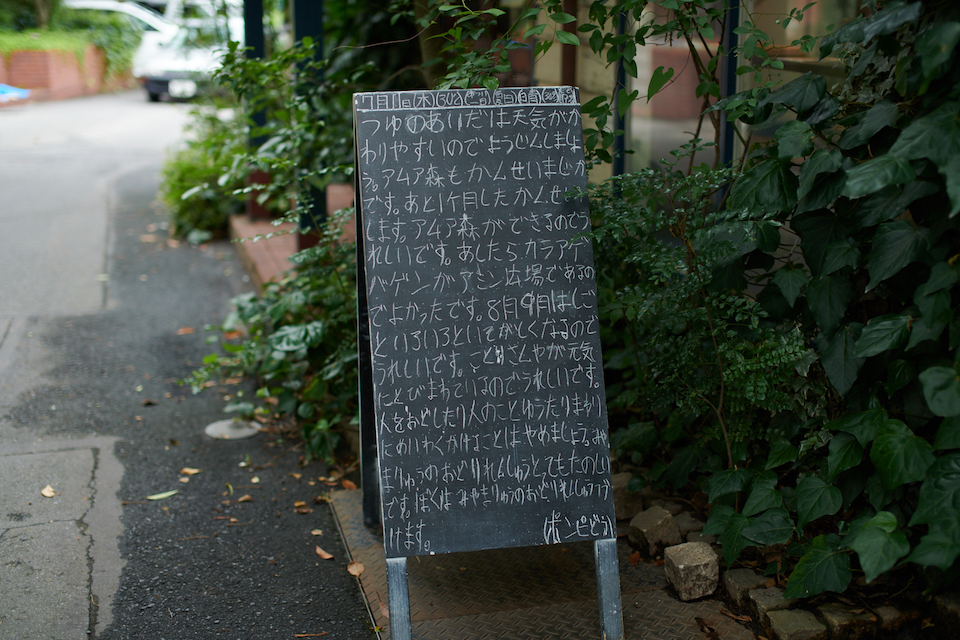 7月11日(木)
つゆのあいだは天気がか
わりやすいのでようじんしましょ
う。アムア森もかんせいまじか
です。あと1ヶ月したらかんせい
します。アムア森ができるのでう
れしいです。あしたらカラアゲ
バゲンがアミン広場であるの
でよかったです。8月9月はしご
といろいろといそがしくなるので
うれしいです。ことりさんやが元気
にとびまわているのでうれしいです。
人をおどしたり人のことゆうたりまわり
にめいわくかけることはやめましょう。みや
まりゅうのおどりれんしゅうとてもたのしい
です。ぼくはみやまりゅうのおどりれんしゅうつづ
けます。
(ポンピどう)